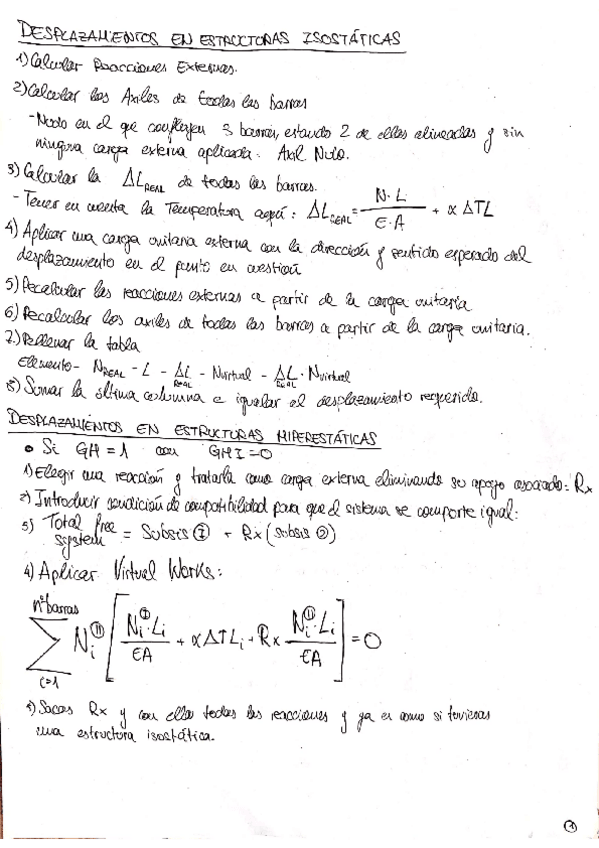 DESPLAZAMIENTOS EN ESTRUCTURAS ISOSTÁTICAS
1) Calcular Reacciones Externas.
2) Calcular los Axiles de todas las barras
- Nudo en el que confluyen 3 barras, estando 2 de ellas alineadas y sin
ninguna carga externa aplicada: Axil Nulo.
3) Calcular la ΔL_REAL de todas las barras.
- Tener en cuenta la Temperatura aquí: ΔL_REAL = N·L / E·A + α ΔTL
4) Aplicar una carga unitaria externa con la dirección y sentido esperado del
desplazamiento en el punto en cuestión
5) Recalcular las reacciones externas a partir de la carga unitaria
6) Recalcular los axiles de todas las barras a partir de la carga unitaria.
7) Rellenar la tabla
Elemento - N_REAL - L - ΔL_REAL - Nvirtual - ΔL_REAL · Nvirtual
8) Sumar la última columna e igualar al desplazamiento requerido.
DESPLAZAMIENTOS EN ESTRUCTURAS HIPERESTÁTICAS
• Si GH = 1 con GHI = 0
1) Elegir una reacción y tratarla como carga externa eliminando su apoyo asociado: Rx
2) Introducir condición de compatibilidad para que el sistema se comporte igual:
3) Total free system = Subsis Ⓘ + Rx (subsis Ⓘ Ⓘ)
4) Aplicar Virtual Works:
nº barras Σ i=1 N_i^(II) [ N_i^(I)·L_i / EA + α ΔT L_i + Rx N_i^(II)·L_i / EA ] = 0
5) Sacas Rx y con ella todas las reacciones y ya es como si tuvieras
una estructura isostática.
1